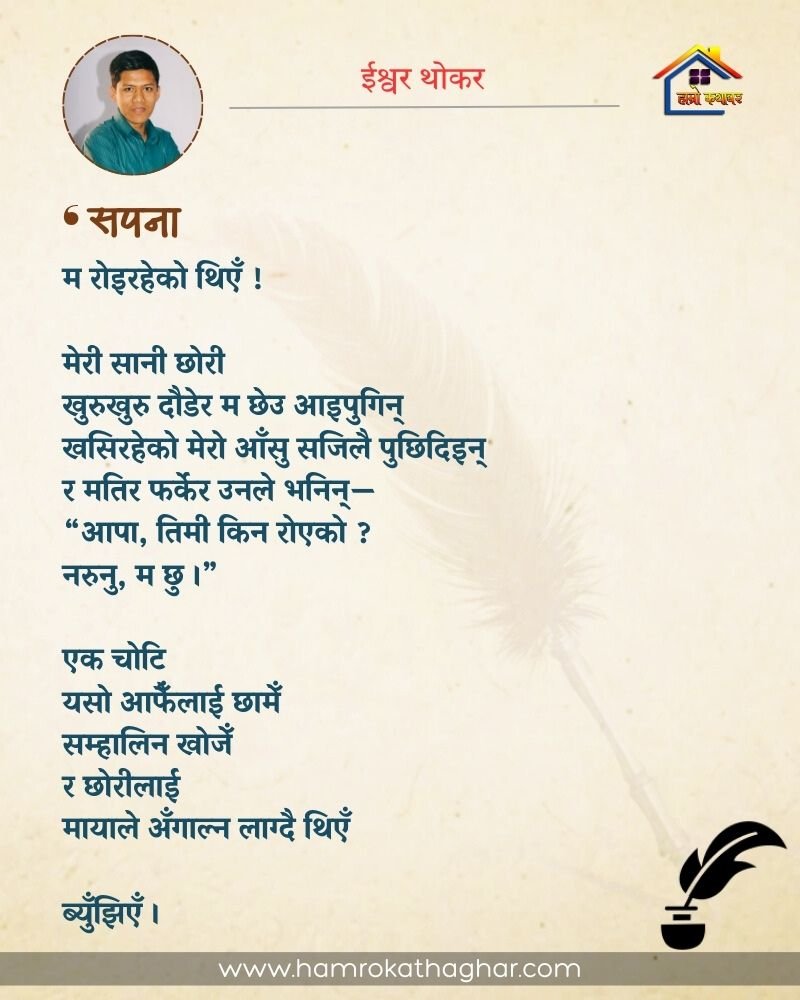 ईश्वर थोकर
हाम्रो कथाघर
‘ सपना
म रोइरहेको थिएँ !
मेरी सानी छोरी
खुरुखुरु दौडेर म छेउ आइपुगिन्
खसिरहेको मेरो आँसु सजिलै पुछिदिइन्
र मतिर फर्केर उनले भनिन्—
“आपा, तिमी किन रोएको ?
नरुनु, म छु ।”
एक चोटि
यसो आफैँलाई छामेँ
सम्हालिन खोजेँ
र छोरीलाई
मायाले अँगाल्न लाग्दै थिएँ
ब्युँझिएँ ।
www.hamrokathaghar.com